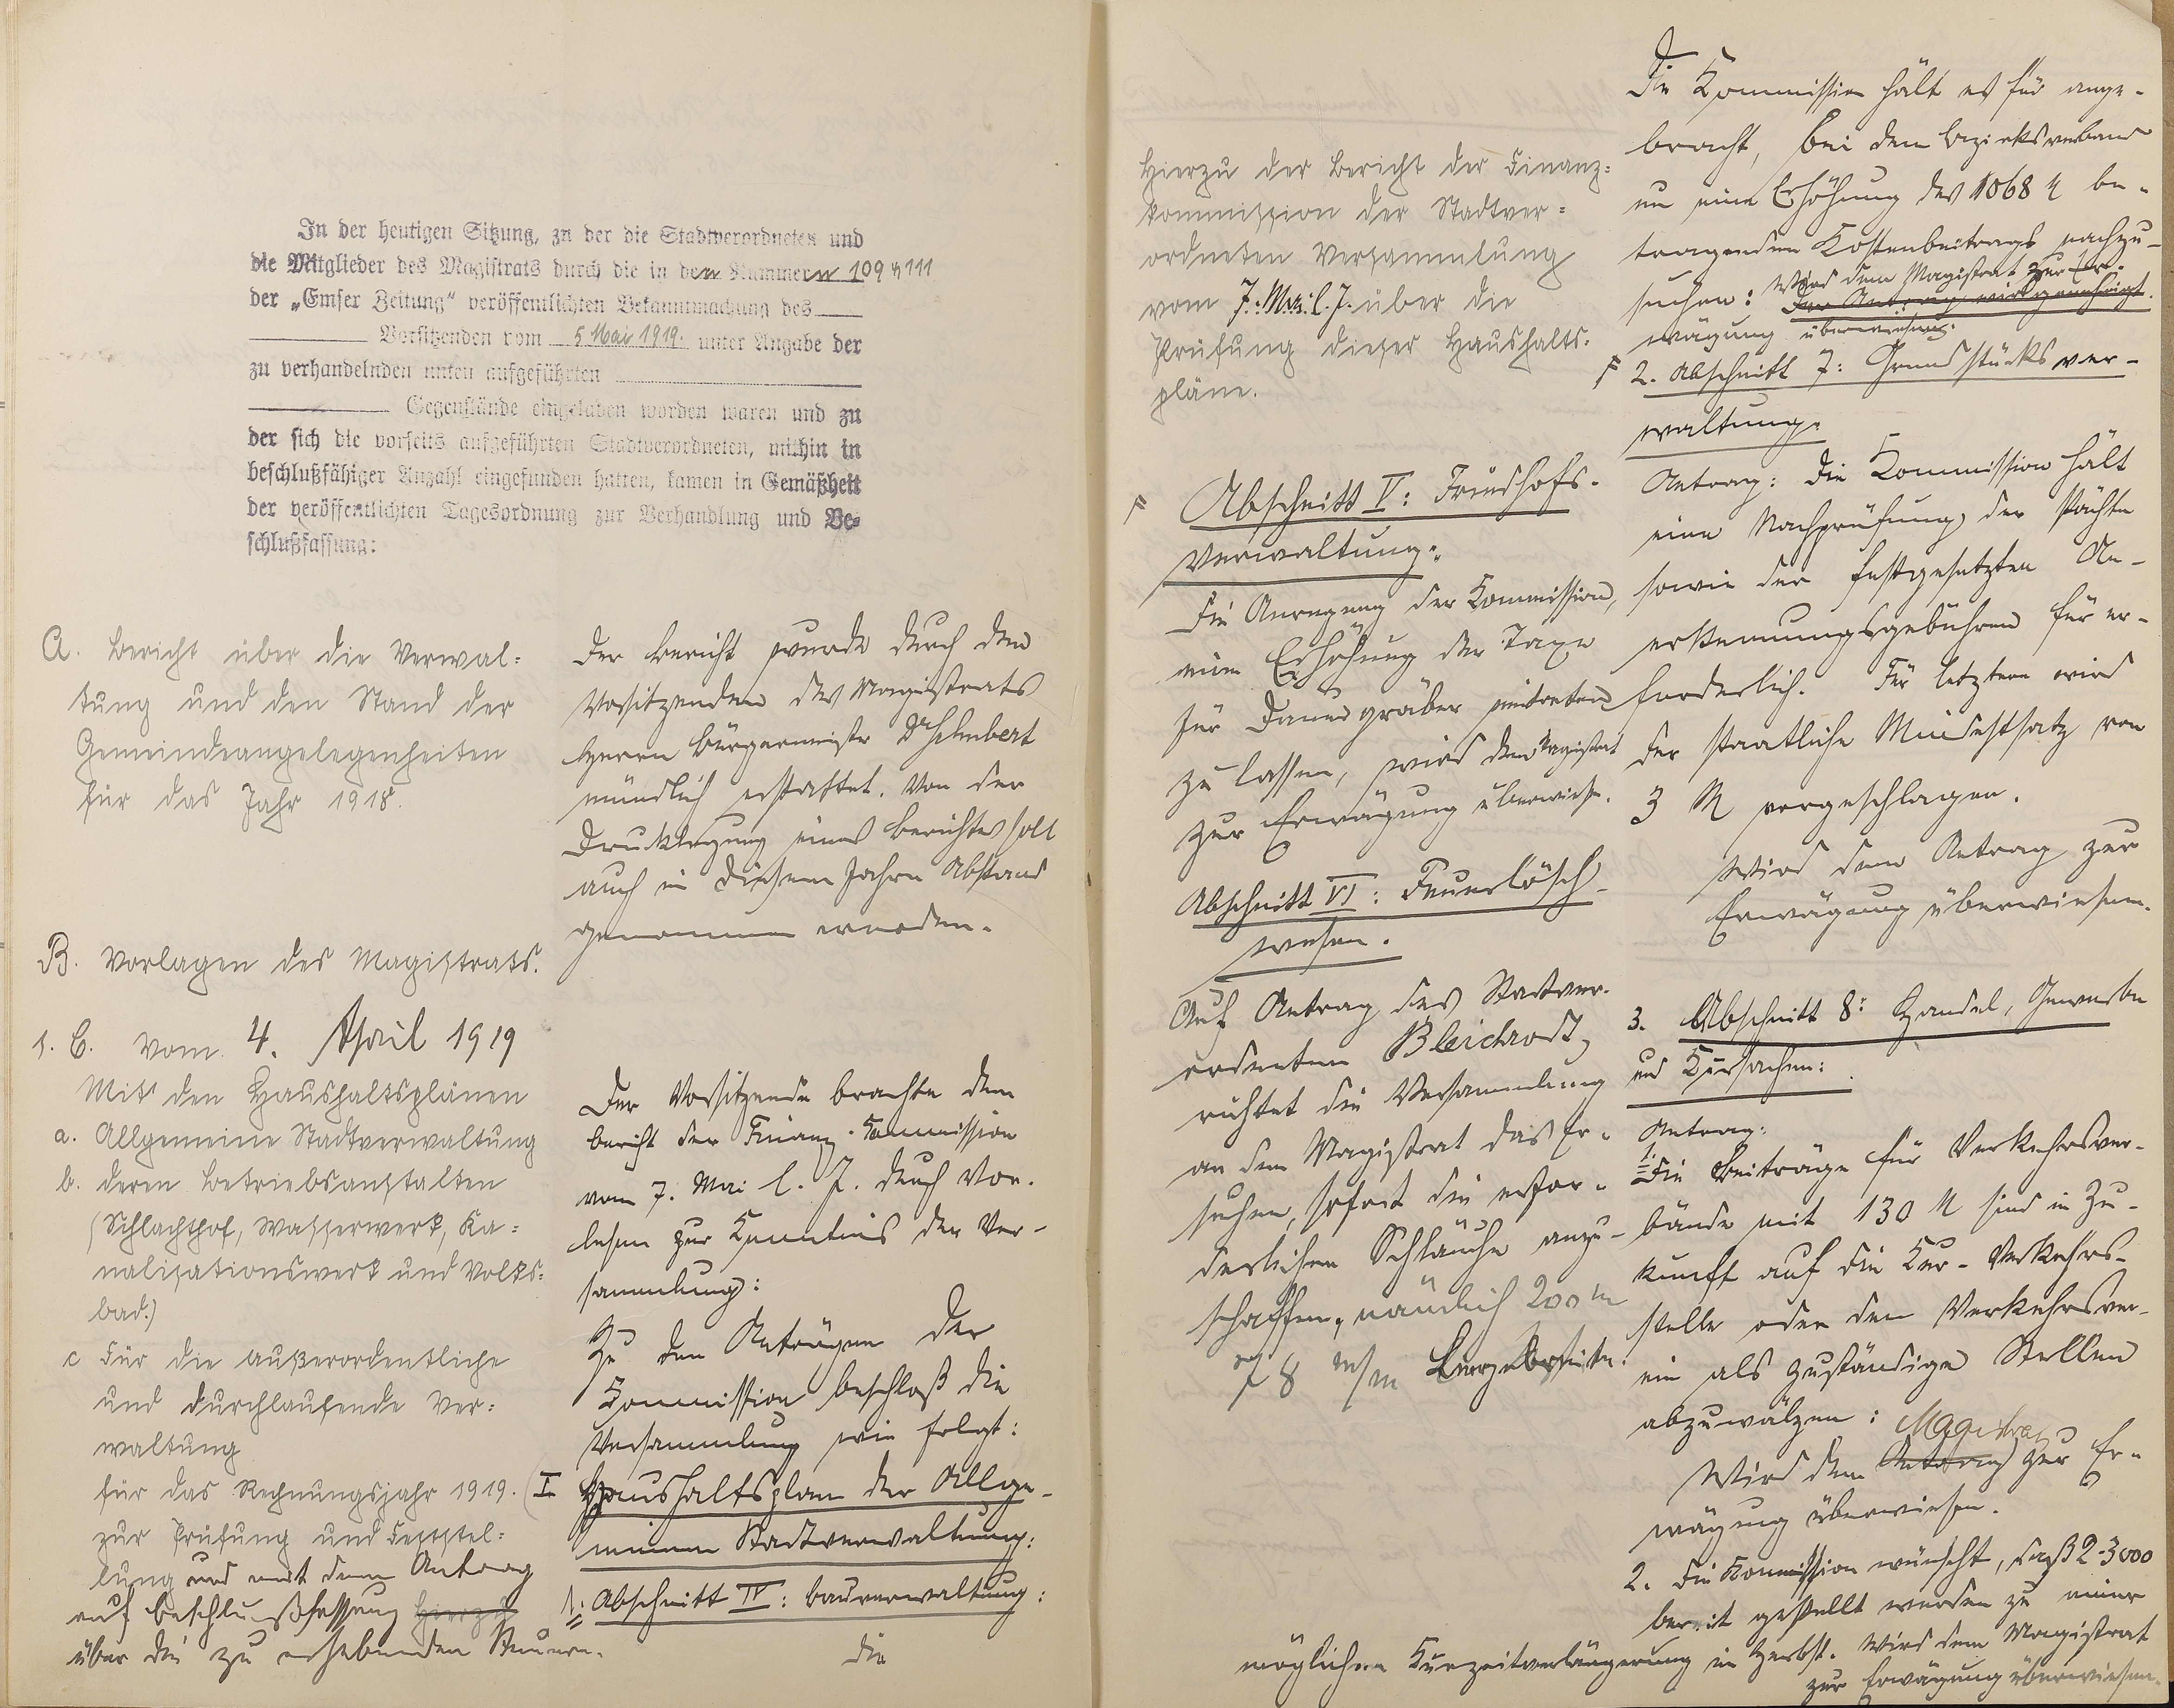 In der heutigen Sitzung, zu der die Stadtverordneten und
die Mitglieder des Magistrats durch die in den Nummern 109 u 111
der „Emser Zeitung“ veröffentlichten Bekanntmachung des
Vorsitzenden vom 5 Mai 1919. unter Angabe der
zu verhandelnden unten aufgeführten
Gegenstände eingeladen worden waren und zu
der sich die vorseits aufgeführten Stadtverordneten, mithin in
beschlußfähiger Anzahl eingefunden hatten, kamen in Gemäßheit
der veröffentlichten Tagesordnung zur Verhandlung und Be-
schlußfassung:
A. Bericht über die Verwal=
tung und den Stand der
Gemeindeangelegenheiten
für das Jahr 1918.
B. Vorlagen des Magistrats.
1. E. vom 4. April 1919
Mit den Haushaltsplänen
a. Allgemeine Stadtverwaltung
b. deren Betriebsanstalten
(Schlachthof, Wasserwerk, Ka=
nalisationswerk und Volks=
bad.)
c Für die außerordentliche
und durchlaufende Ver=
waltung
für das Rechnungsjahr 1919.
zur Prüfung und Feststel=
lung und mit dem Antrag
auf Beschlußfassung hierzu
über die zu erhebenden Steuern.
Der Bericht wurde durch den
Vorsitzenden des Magistrats
Herrn Bürgermeister Dr Schubert
mündlich erstattet. Von der
Drucklegung eines Berichtes soll
auch in diesem Jahre Abstand
genommen werden.
Der Vorsitzende brachte den
Bericht der Finanz-Kommission
vom 7. Mai l. J. durch Vor-
lesen zur Kenntnis der Ver-
sammlung:
Zu den Anträgen der
Kommission beschloß die
Versammlung wie folgt:
I Haushaltsplan der Allge-
meinen Stadtverwaltung:
1. Abschnitt IV: Bauverwaltung:
Die
Hierzu der Bericht der Finanz=
kommission der Stadtver=
ordneten Versammlung
vom 7. Mai l. J. über die
Prüfung dieser Haushalts=
pläne.
Abschnitt V: Friedhofs-
verwaltung.
Die Anregung der Kommission,
eine Erhöhung der Taxe
für Dauergräber eintreten
zu lassen, wird dem Magistrat
zur Erwägung überwiesen.
Abschnitt VI: Feuerlösch-
wesen.
Auf Antrag des Stadtver-
ordneten Bleichrodt,
richtet die Versammlung
an den Magistrat das Er-
suchen, sofort die erfor-
derlichen Schläuche anzu-
schaffen, nämlich 200 m
78 m/m
Die Kommission hält es für ange-
bracht, bei dem Bezirksverband
um eine Erhöhung des 1068 M be-
tragenden Kostenbeitrags nachzu-
suchen: Wird dem Magistrat zur Er-
Der Antrag wird genehmigt.
wägung überwiesen.
2. Abschnitt 7: Grundstücksver-
waltung.
Antrag: Die Kommission hält
eine Nachprüfung der Pächte
sowie der festgesetzten An-
erkennungsgebühren für er-
forderlich. Für letztere wird
der staatliche Mindestsatz von
3 M vorgeschlagen.
Wird dem Antrag zur
Erwägung überwiesen.
3. Abschnitt 8: Handel, Gewerbe
und Kursachen:
Antrag:
1. Die Beiträge für Verkehrsver-
bände mit 130 M sind in Zu-
kunft auf die Kur-Verkehrs-
stelle oder den Verkehrsver-
ein als zuständige Stellen
abzuwälzen: Magistrat
Wird dem Antrag zur Er-
wägung überwiesen.
2. Die Kommission wünscht, daß 2-3000
bereit gestellt werden zu einer
möglichen Kurzeitverlängerung im Herbst. Wird dem Magistrat
zur Erwägung überwiesen.